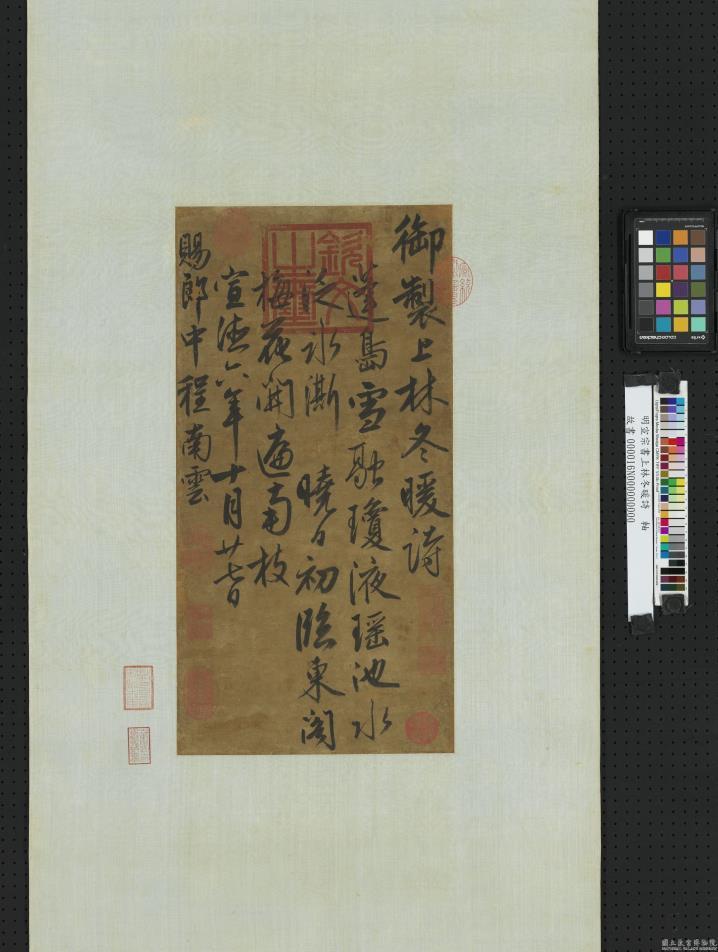 御製上林冬暖詩
蓬島雪融瓊液瑤池水
泛冰澌 曉日初臨東閣
梅花開遍南枝
宣德六年十月廿七日
賜郎中程南雲
欽文之璽
明宣宗書上林冬暖詩　軸
故書 000016N000000000
國立故宮博物院